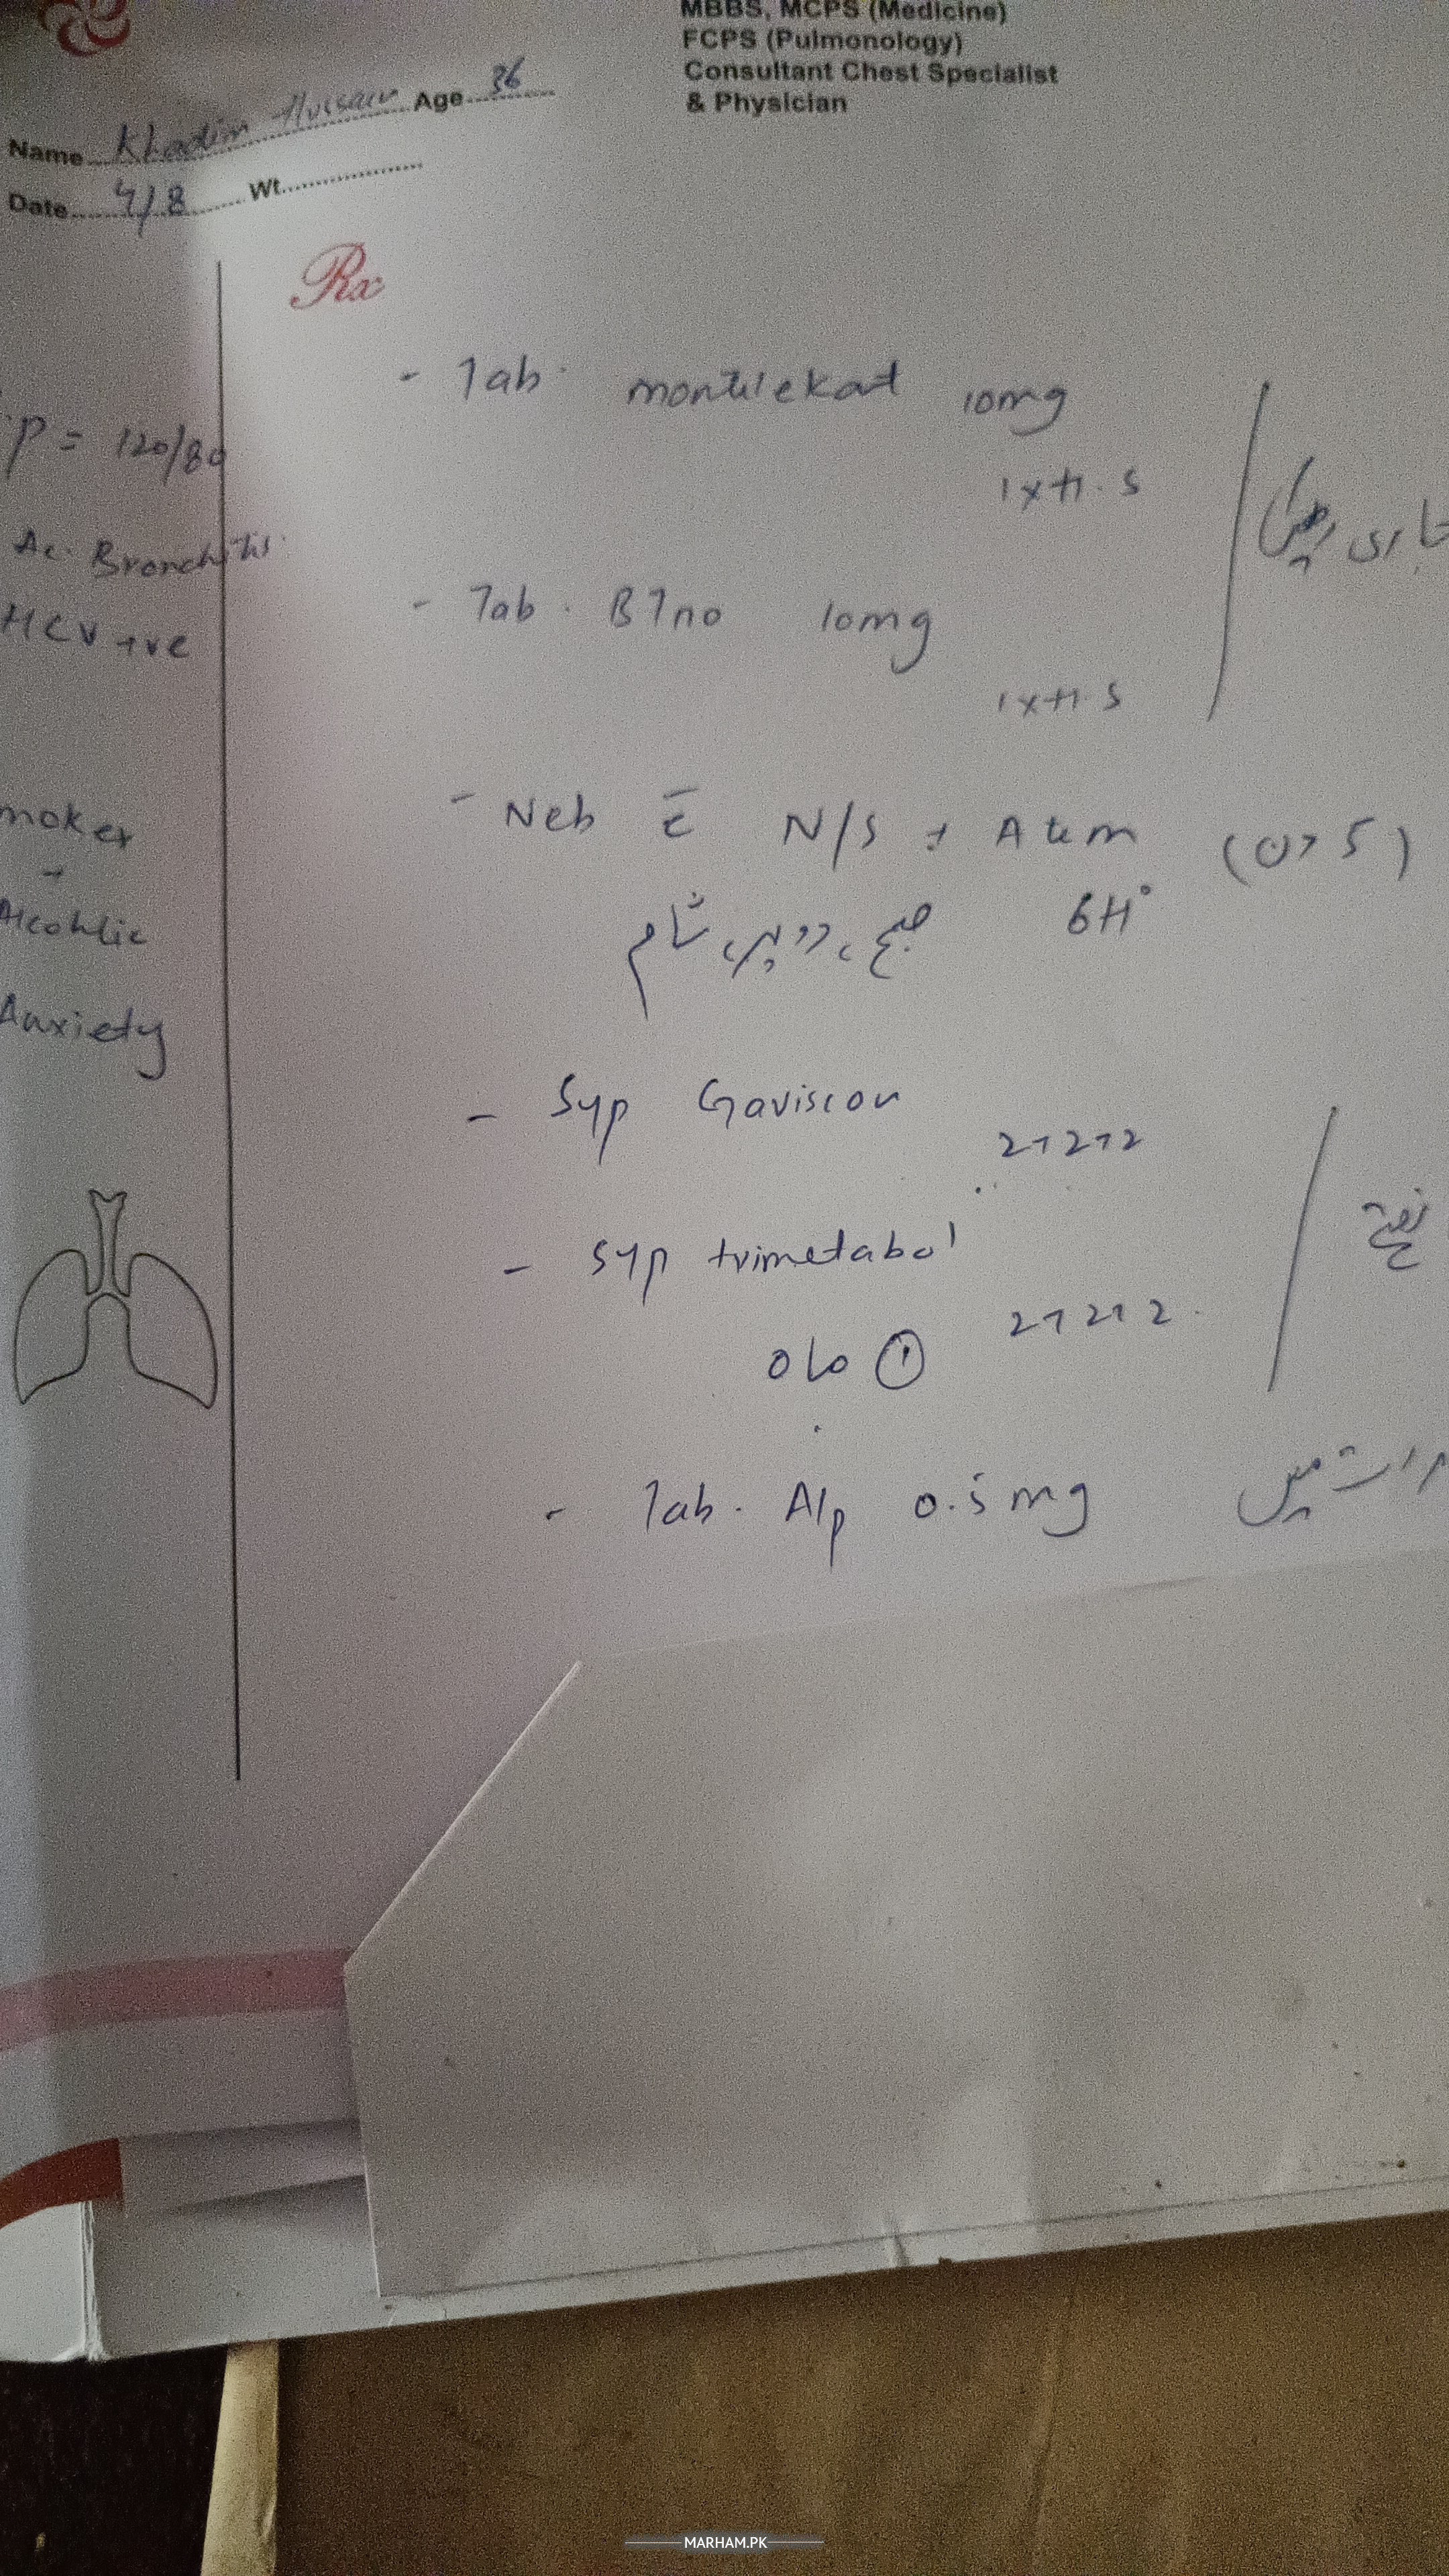 MBBS, MCPS (Medicine)
FCPS (Pulmonology)
Consultant Chest Specialist
& Physician
Name Khadim Hussain Age 36
Date 4/8 Wt
Rx
P = 120/80
Ac. Bronchitis
HCV +ve
moker
+
Alcohlic
Anxiety
- Tab. montelekast 10mg
1 x H.S
- Tab. 10mg
1 x H.S
جاری رکھیں
- Neb c̄ N/S + Atem (0.5)
صبح، دوپہر، شام 6H°
- Syp Gaviscon
2+2+2
- Syp trimetabol
2+2+2
- Tab. Alp 0.5 mg
MARHAM.PK